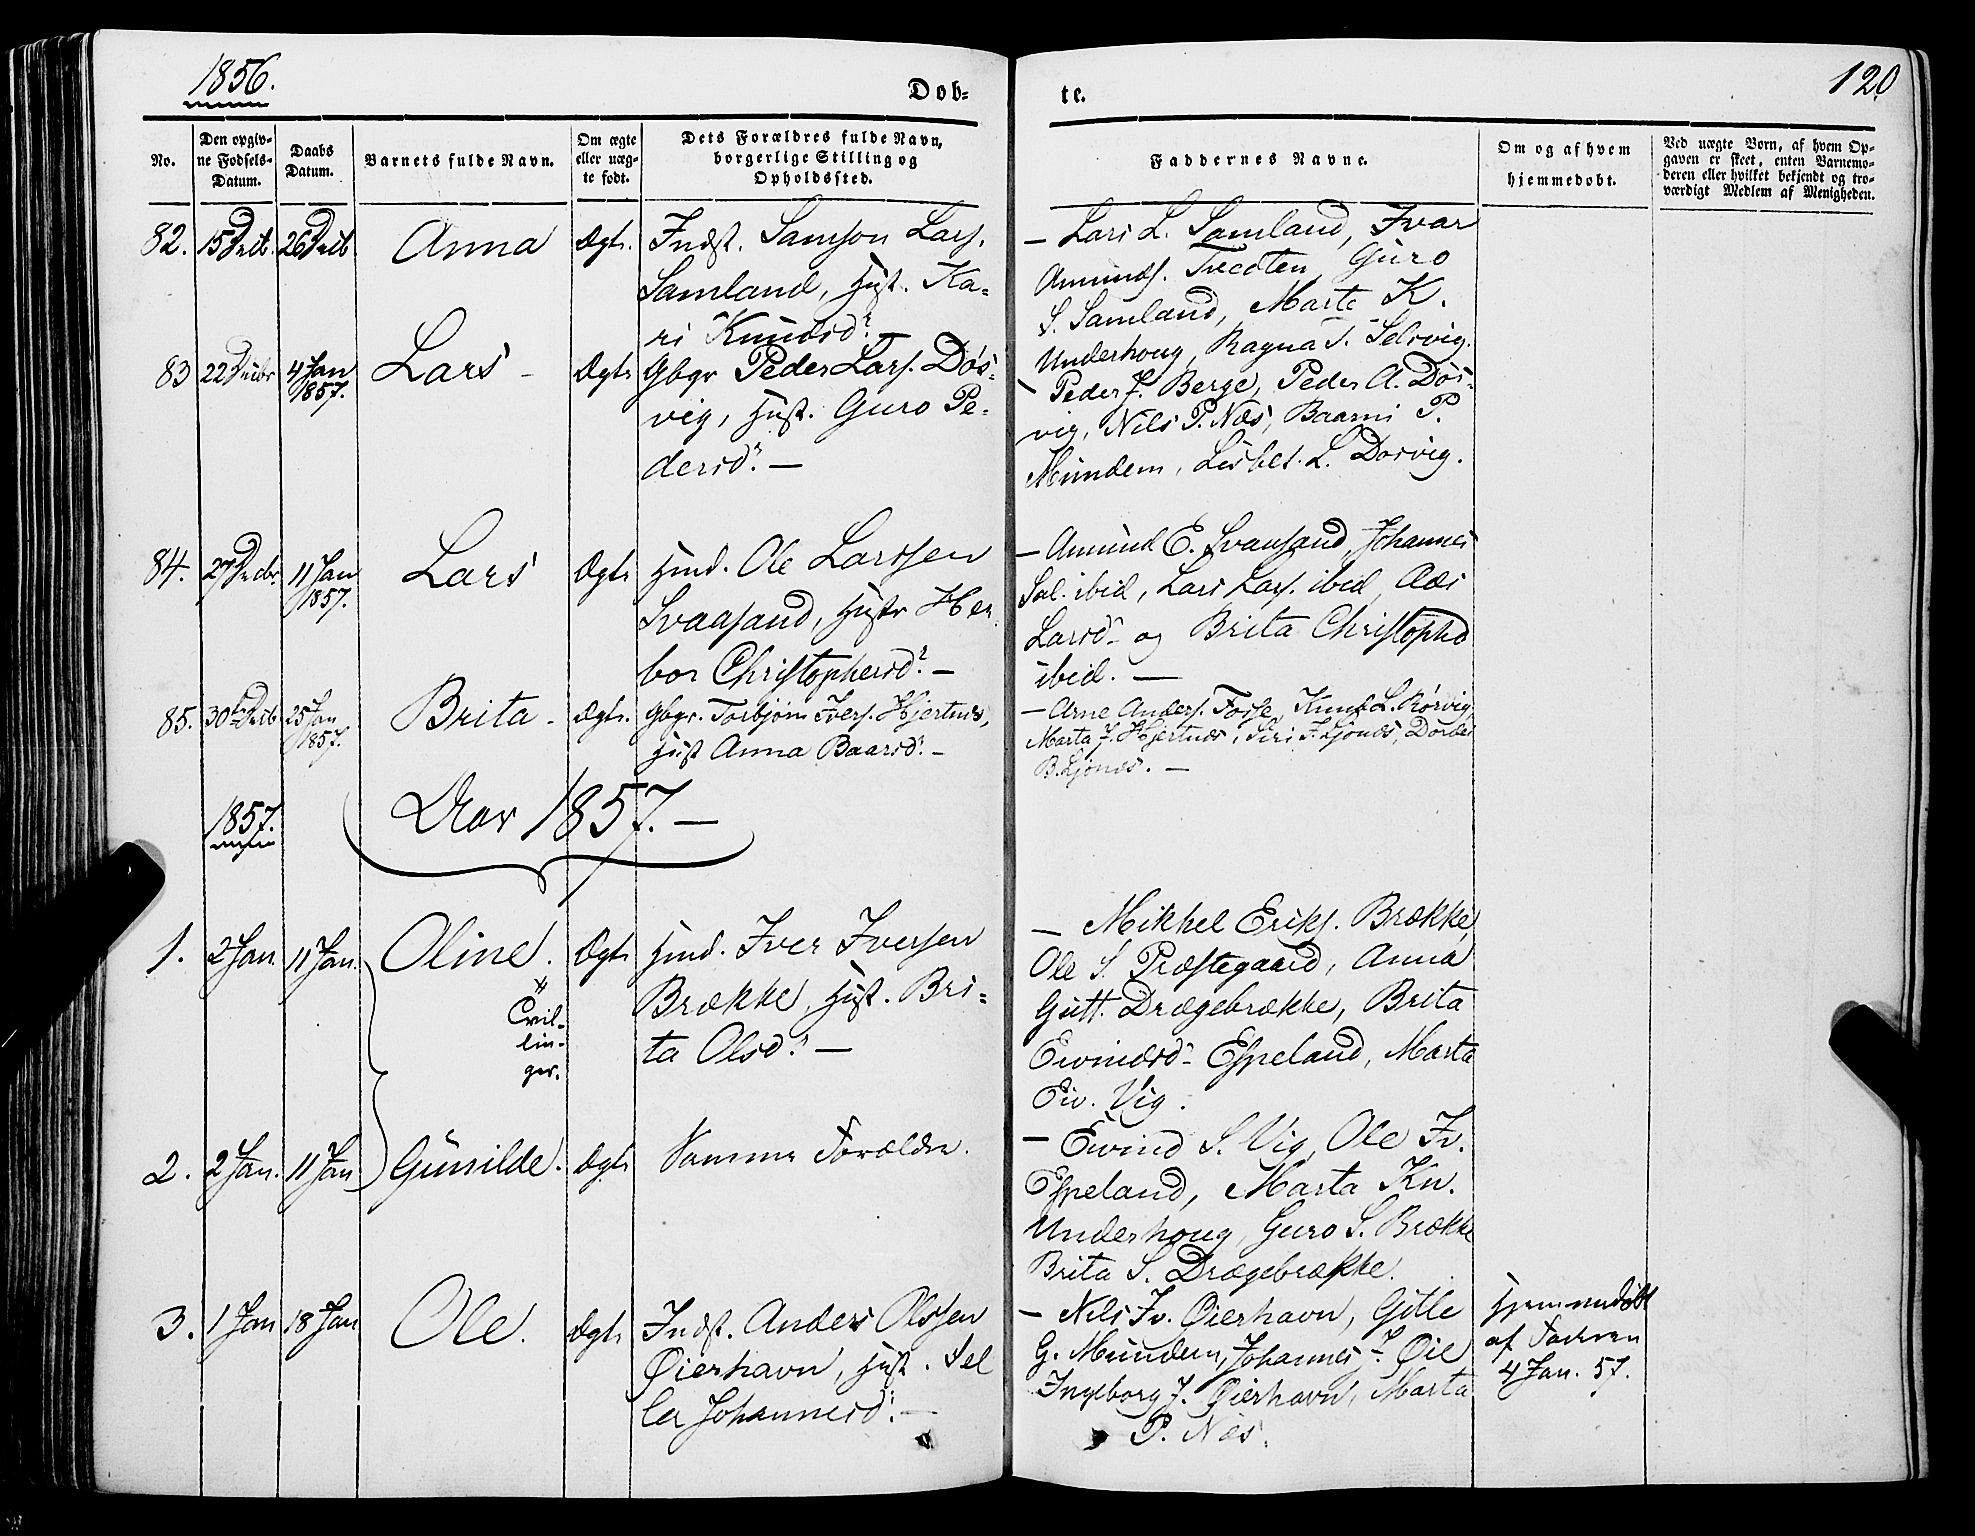 1856.
Døb-
te.
120
No.
Den opgiv-
ne Fødsels-
Datum.
Daabs
Datum.
Barnets fulde Navn.
Om ægte
eller uæg-
te født.
Dets Forældres fulde Navn,
borgerlige Stilling og
Opholdssted.
Faddernes Navne.
Om og af hvem
hjemmedøbt.
Ved uægte Børn, af hvem Op-
gaven er skeet, enten Barnemo-
deren eller hvilket bekjendt og tro-
værdigt Medlem af Menigheden.
82. 15 Decb. 26 Decb Anna Ægte. Indst. Samson Lars.
Samland, Hust. Ka-
ri Knudsd.
— Lars L. Samland, Ivar
Amunds. Tvedten, Guro
S. Samland, Marte K.
Underhoug, Ragna T. Selsvig.
83 22 Decbr 4 Jan
1857.
Lars – Ægte Gbgr Peder Lars. Døs-
vig, Hust. Guro Pe-
dersd. —
Peder J. Berge, Peder A. Døs-
vig, Nils P. Næs, Baarni P.
Mundem, Lisbet L. Dosvig.
84. 27 Decbr. 11 Jan
1857.
Lars Ægte Hmd. Ole Larssen
Svaasand, Hustr Her-
bor Christophersd. —
— Amund E. Svaasand, Johannes
Sal. ibid, Lars Lars. ibid,
Larsd. og Brita Christophd
ibid. —
85. 30 Decb 25 Jan
1857.
Brita – Ægte. Gbgr. Torbjørn Ivers. Hjertnes,
Hust Anna Baarsd. —
— Arne Anders. Fosse, Knud L. Rørvig
Marta J. Hjertnes, Siri J. Ljones, Dordei
B. Ljones. —
1857.
Aar 1857. —
1. 2 Jan. 11 Jan. Oline. Ægte Hmd. Iver Iversen
Brække, Hust. Bri-
ta Olsd. —
Tvil-
lin-
ger.
— Mikkel Eriks. Brække,
Ole S. Præstegaard, Anna
Gutt. Drægebrække, Brita
Eivindsd. Espeland, Marta
Eiv. Vig.
2. 2 Jan. 11 Jan Gunilde. Ægte Samme Forældre.
— Eivind S. Vig, Ole Iv.
Espeland, Marta Kn.
Underhoug, Guro S. Brække
Brita S. Drægebrække.
3. 1 Jan 18 Jan Ole. Ægte Indst. Anders Olssen
Øierhavn, Hust. Sel
le Johannesd. —
— Nils Iv. Øierhavn, Gitle
G. Mundem, Johannes J. Øie
Ingeborg J. Øierhavn, Marta
P. Næs.
Hjemmedøbt
af Faderen
4 Jan. 57.